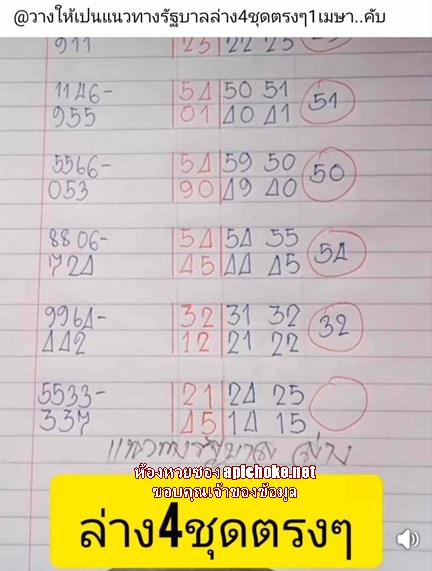 @วางให้เปนแนวทางรัฐบาลล่าง4ชุดตรงๆ1เมษา..คับ
911 23 22 25
1146- 54 50 51 51
955 01 40 41
5566- 54 59 50 50
053 90 49 40
8806- 54 54 55 54
724 45 44 45
9964- 32 31 32 32
442 12 21 22
5533- 21 24 25
337 45 14 15
แนวทางรัฐบาล ล่าง
ห้องหวยซอง apichoke.net
ขอบคุณเจ้าของข้อมูล
ล่าง4ชุดตรงๆ